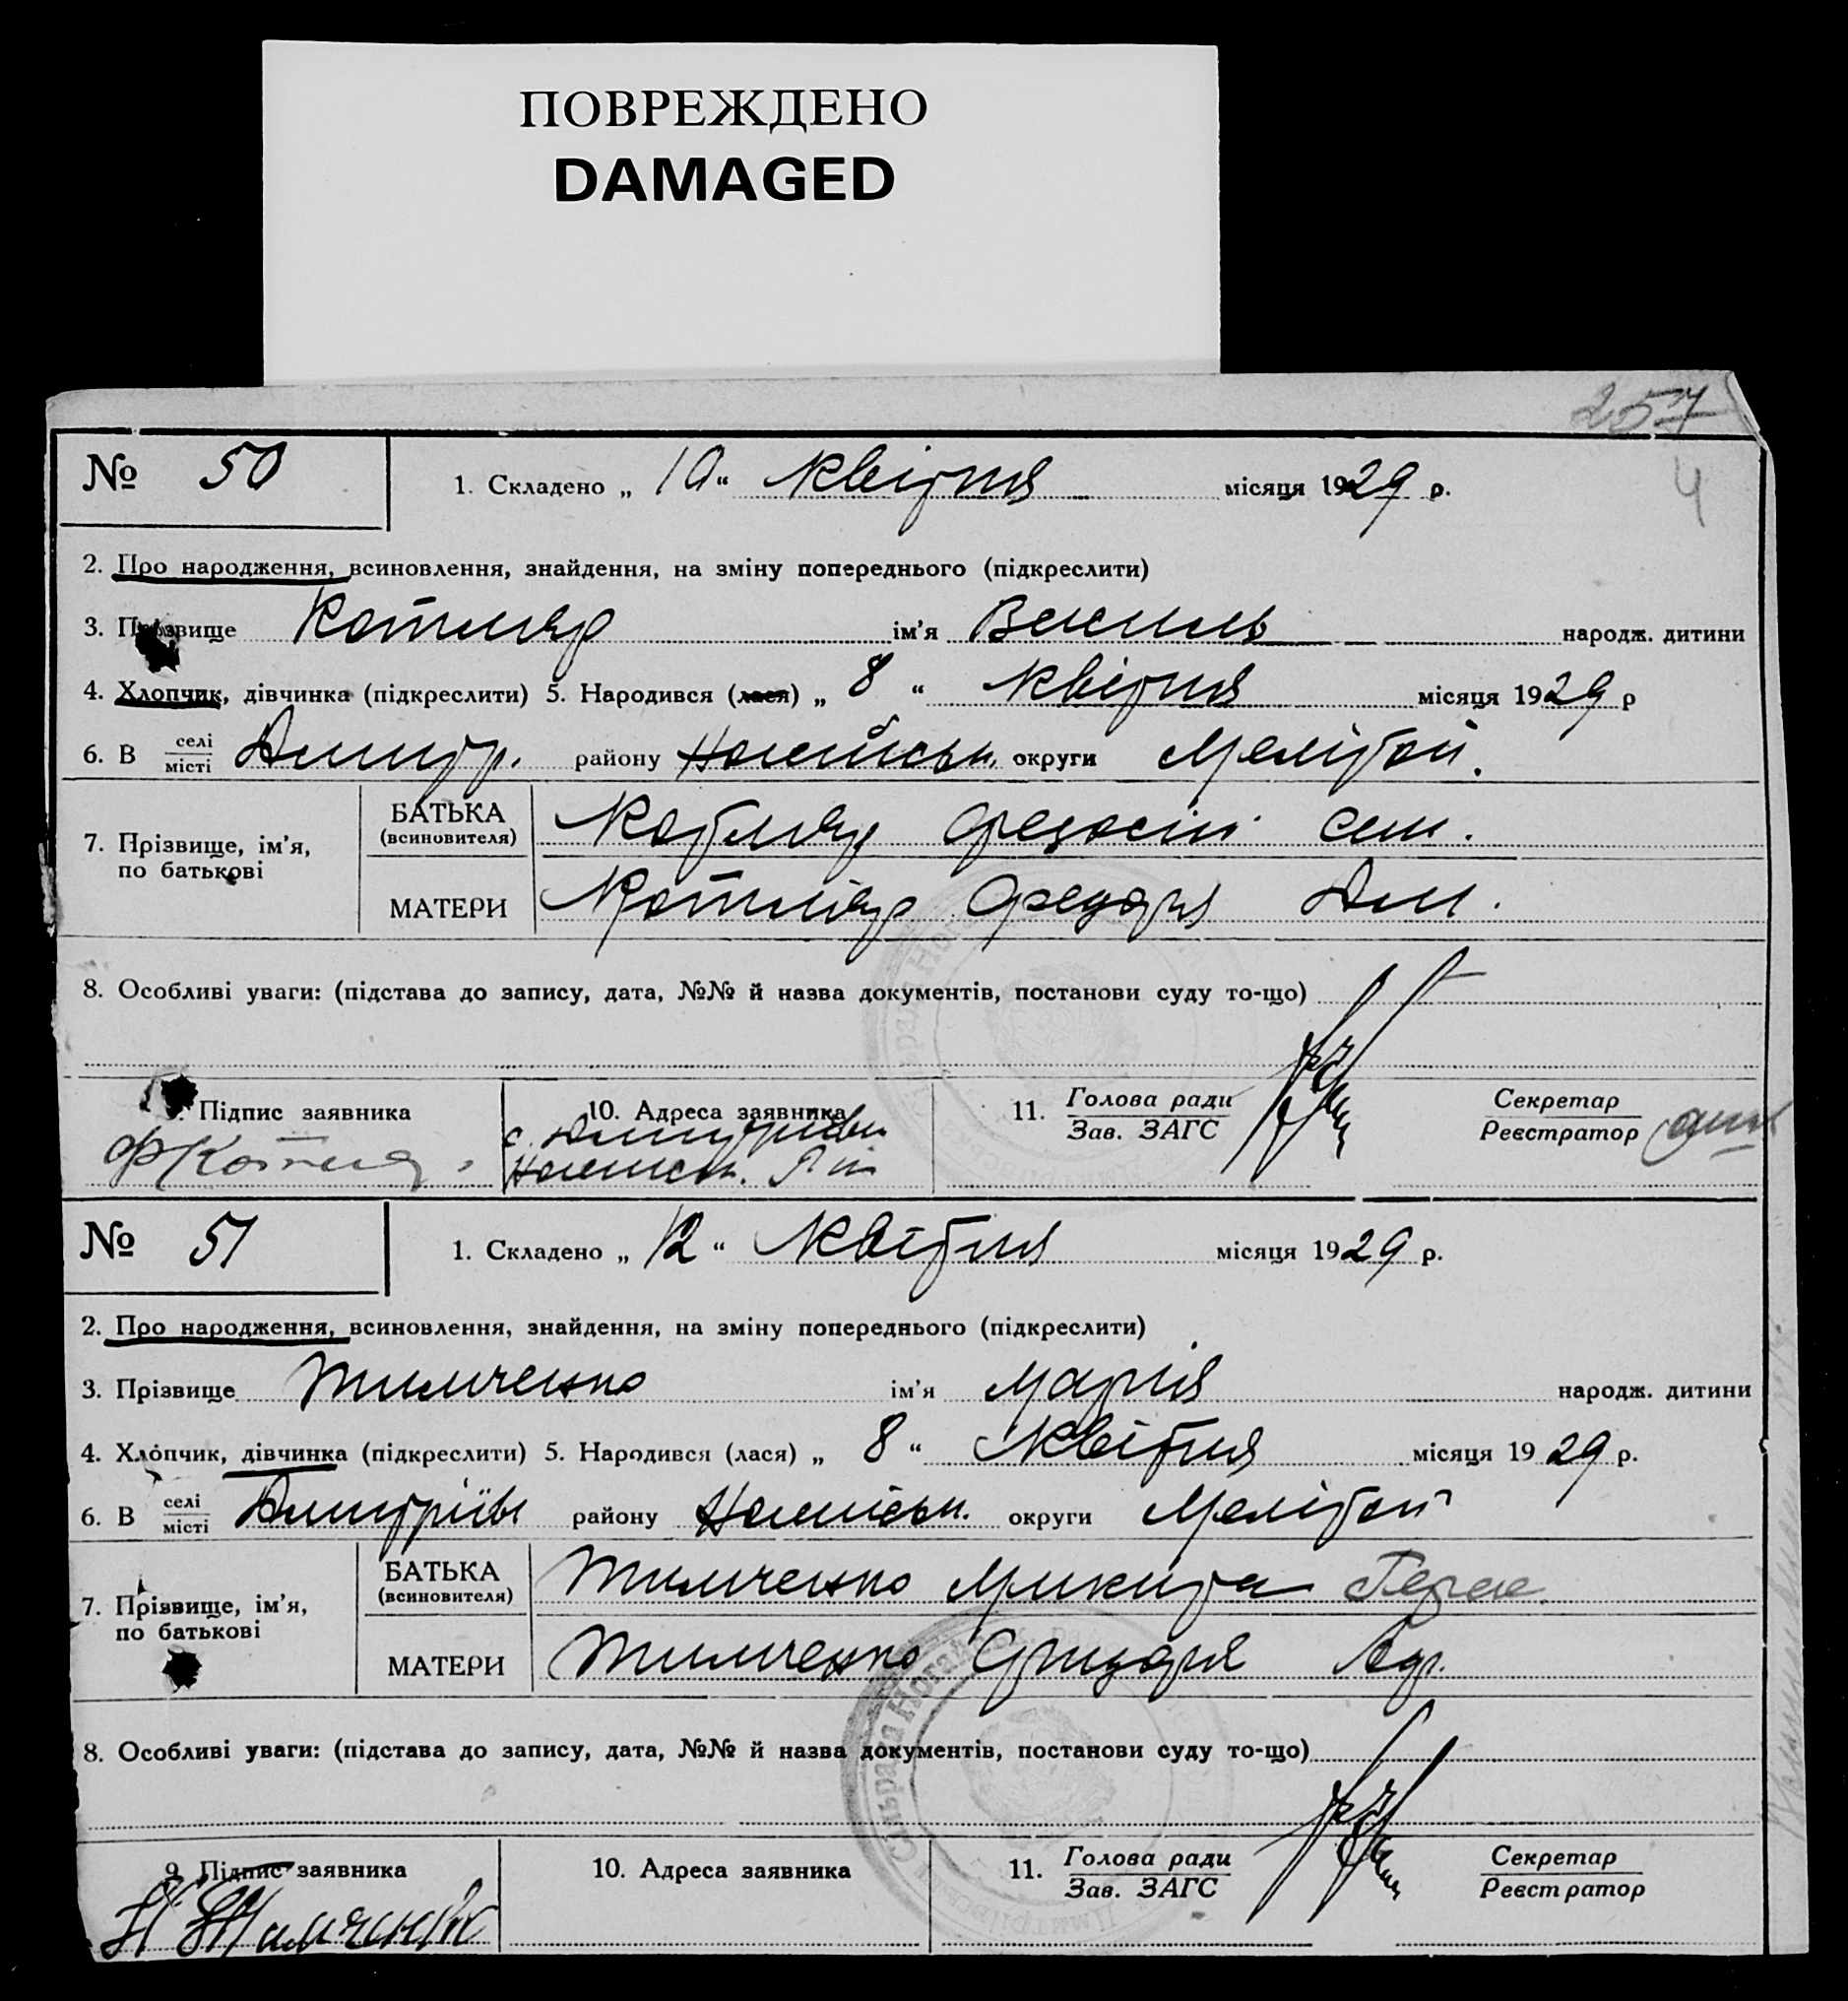 ПОВРЕЖДЕНО
DAMAGED
257
4
№ 50
1. Складено „ 10 “ Квітня місяця 1929 р.
2. Про народження, всиновлення, знайдення, на зміну попереднього (підкреслити)
3. Прізвище Котляр ім'я Василь народж. дитини
4. Хлопчик, дівчинка (підкреслити) 5. Народився (лася) „ 8 “ Квітня місяця 1929 р
6. В селі місті Дмитр. району округи Мелітоп.
7. Прізвище, ім'я, по батькові
БАТЬКА (всиновителя) Котляр Федосій Сем.
МАТЕРИ Котляр Федора Дем.
8. Особливі уваги: (підстава до запису, дата, №№ й назва документів, постанови суду то-що)
Підпис заявника
10. Адреса заявника
11. Голова ради Зав. ЗАГС
Секретар Реєстратор
ФКотля
с. Дмитрівки
№ 51
1. Складено „ 12 “ Квітня місяця 1929 р.
2. Про народження, всиновлення, знайдення, на зміну попереднього (підкреслити)
3. Прізвище Тимченко ім'я Марія народж. дитини
4. Хлопчик, дівчинка (підкреслити) 5. Народився (лася) „ 8 “ Квітня місяця 1929 р.
6. В селі місті Дмитрівк району округи Мелітоп
7. Прізвище, ім'я, по батькові
БАТЬКА (всиновителя) Тимченко Микита Герас.
МАТЕРИ Тимченко
8. Особливі уваги: (підстава до запису, дата, №№ й назва документів, постанови суду то-що)
9. Підпис заявника
10. Адреса заявника
11. Голова ради Зав. ЗАГС
Секретар Реєстратор
Тимченко